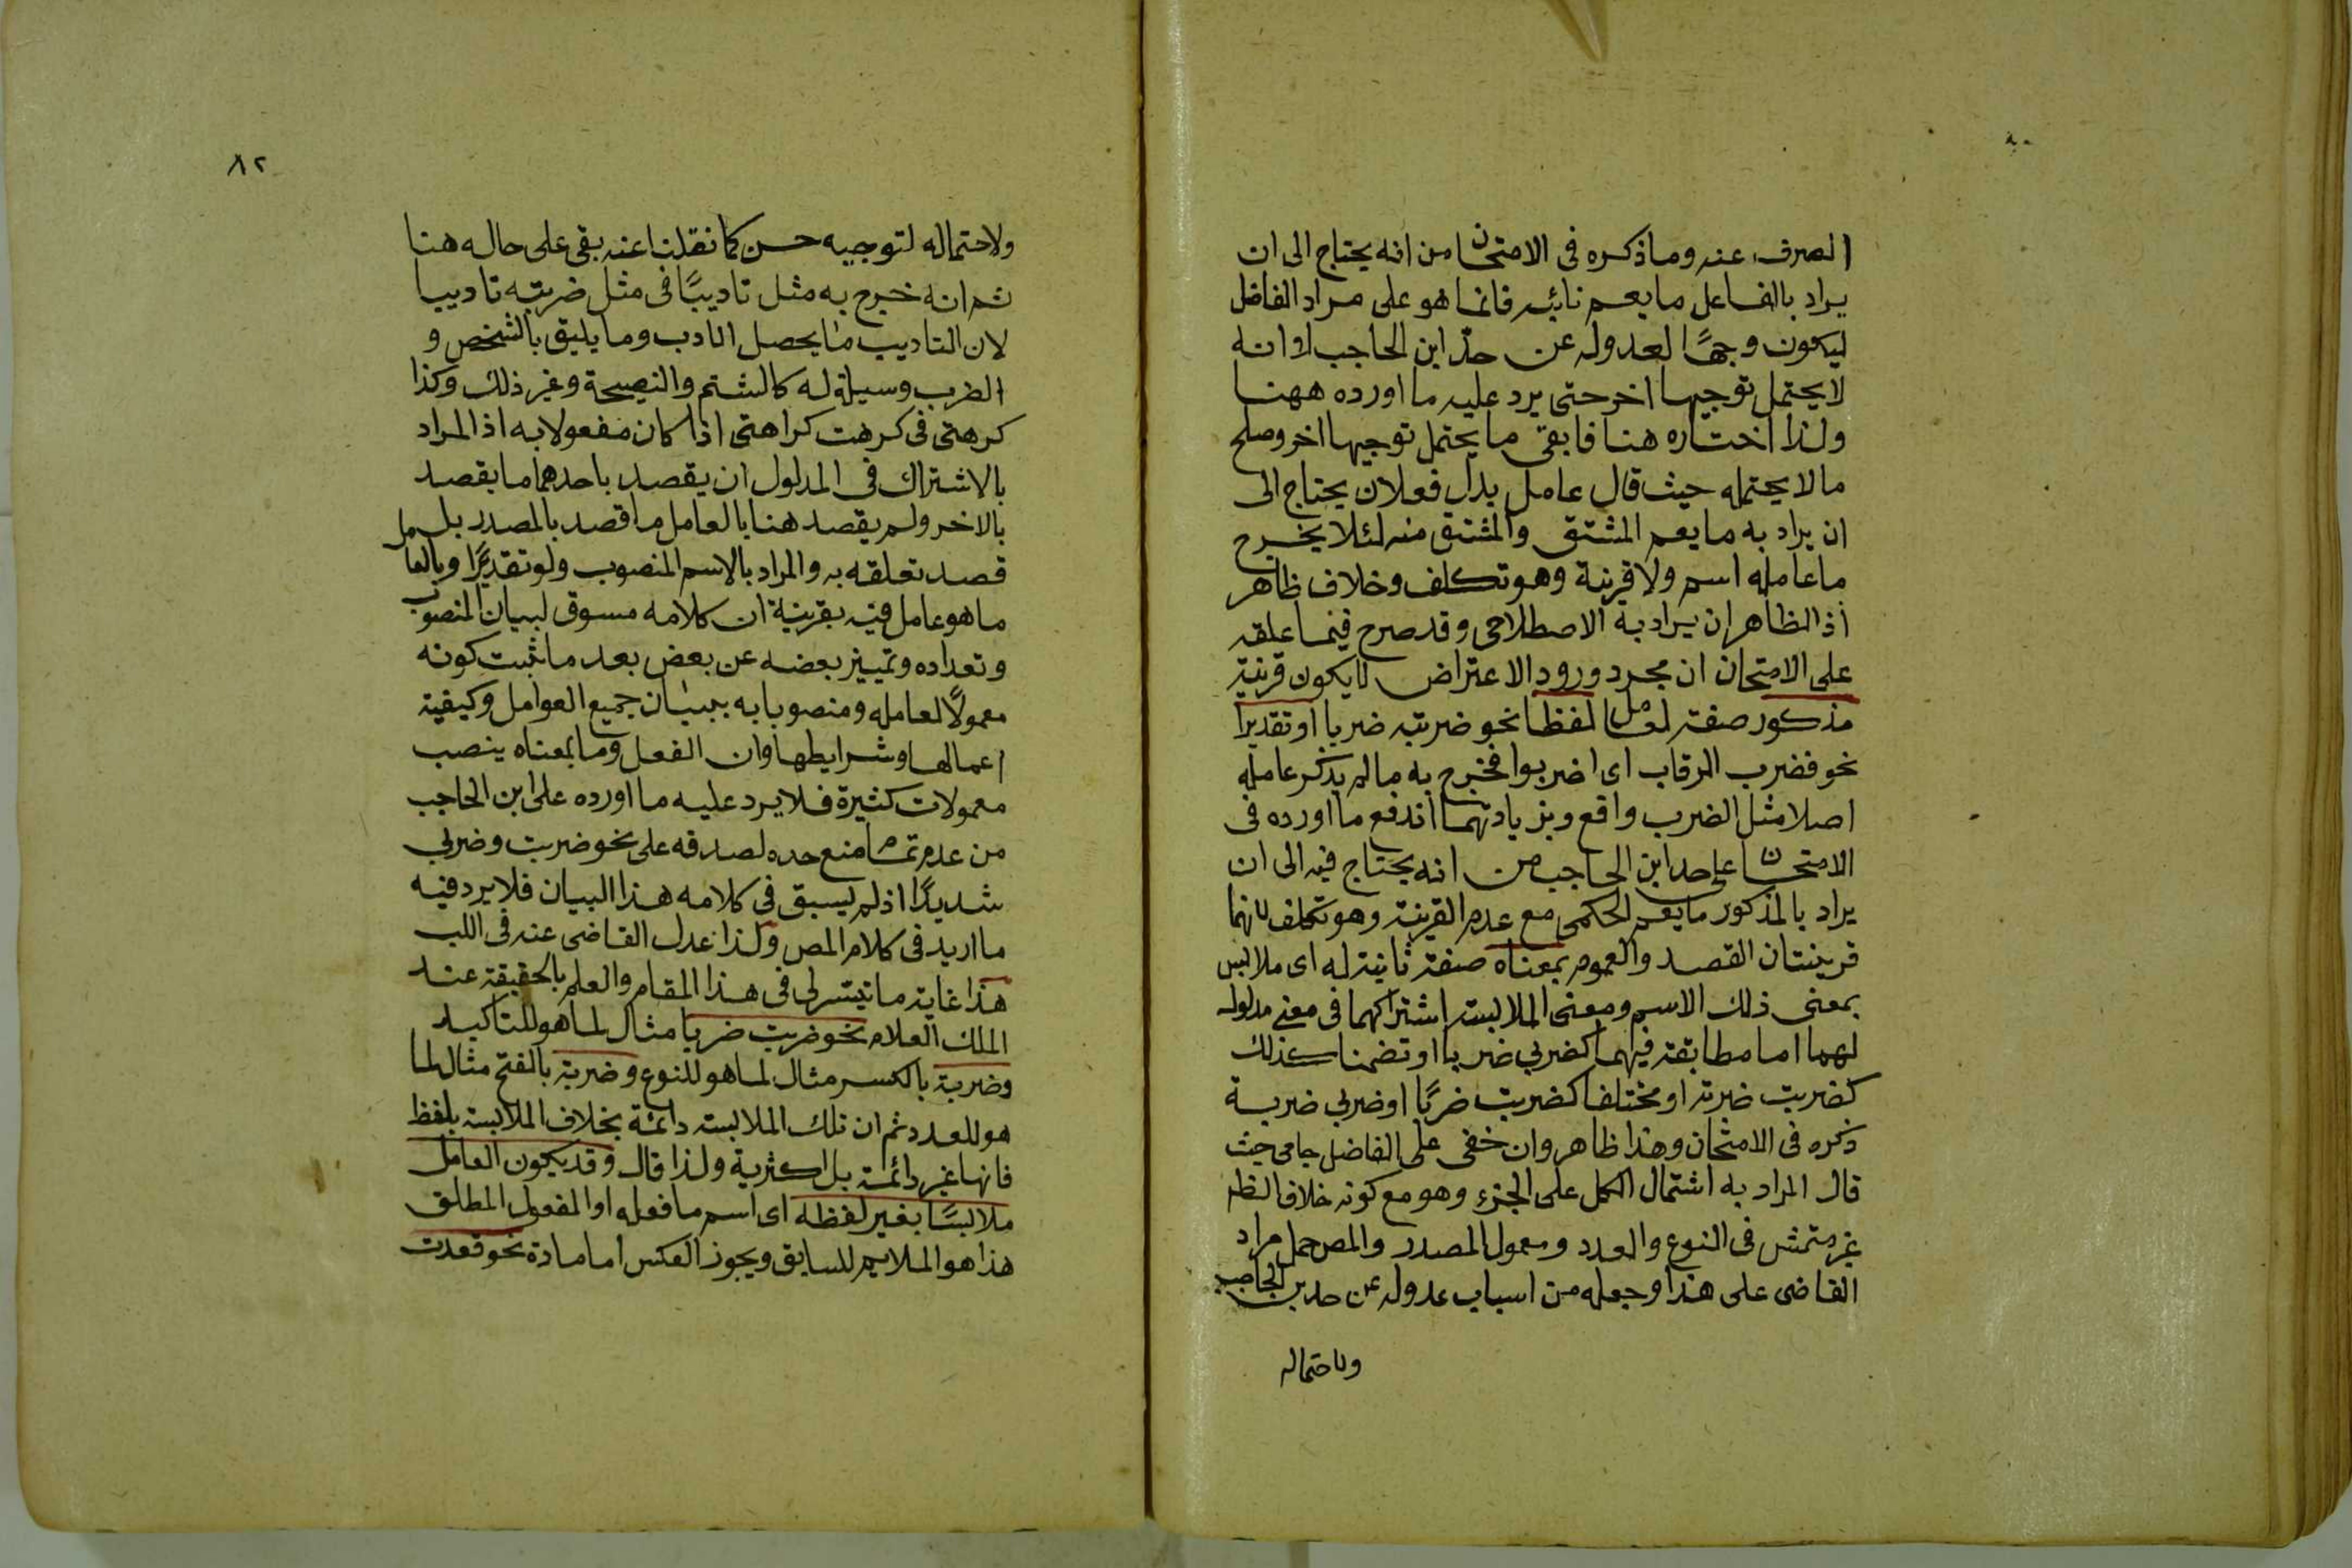 الصرف عنه وما ذكره فى الامتحان من انه يحتاج الى ان
يراد بالفاعل ما يعم نائبه فانما هو على مراد الفاضل
ليكون وجها لعدوله عن حد ابن الحاجب لا انه
لا يحتمل توجيها اخر حتى يرد عليه ما اورده ههنا
ولذا اختاره هنا فابقى ما يحتمل توجيها اخر وصلح
ما لا يحتمله حيث قال عامل بدل فعل لان يحتاج الى
ان يراد به ما يعم المشتق والمشتق منه لئلا يخرج
ما عامله اسم ولا قرينة وهو تكلف وخلاف ظاهر
اذ الظاهر ان يراد به الاصطلاحى وقد صرح فيما علقه
على الامتحان ان مجرد ورود الاعتراض لا يكون قرينة
مذكور صفة لعامل لفظا نحو ضربته ضربا او تقديرا
نحو فضرب الرقاب اى اضربوا فخرج به ما لم يذكر عامله
اصلا مثل الضرب واقع وبزيادتهما اندفع ما اورده فى
الامتحان على حد ابن الحاجب من انه يحتاج فيه الى ان
يراد بالمذكور ما يعم الحكمى مع عدم القرينة وهو تكلف لانهما
قرينتان القصد والعموم بمعناه صفة ثانية له اى ملابس
بمعنى ذلك الاسم ومعنى الملابسة اشتراكهما فى معنى مدلوله
لهما اما مطابقة فيهما كضربى ضربا او تضمنا كذلك
كضربت ضربة او مختلفا كضربت ضربًا او ضربى ضربة
ذكره فى الامتحان وهذا ظاهر وان خفى على الفاضل جامى حيث
قال المراد به اشتمال الكل على الجزء وهو مع كونه خلاف الظ
غير متمش فى النوع والعدد ومعمول المصدر والمص حمل مراد
القاضى على هذا وجعله من اسباب عدوله عن حد بن الحاجب
ولاحتماله
٨٢
ولاحتماله لتوجيه حسن كما نقلنا عنه بقى على حاله هنا
ثم انه خرج به مثل تاديبًا فى مثل ضربته تاديبا
لان التاديب ما يحصل الادب وما يليق بالشخص و
الضرب وسيلة له كالشتم والنصيحة وغير ذلك وكذا
كرهتى فى كرهت كراهتى اذا كان مفعولا به اذ المراد
بالاشتراك فى المدلول ان يقصد باحدهما ما يقصد
بالاخر ولم يقصد هنا بالعامل ما قصد بالمصدر بل
قصد تعلقه به والمراد بالاسم المنصوب ولو تقديرًا وبالعامل
ما هو عامل فيه بقرينة ان كلامه مسوق لبيان المنصوب
وتعداده وتمييز بعضه عن بعض بعد ما ثبت كونه
معمولاً لعامله ومنصوبا به ببيان جميع العوامل وكيفية
اعمالها وشرايطها وان الفعل وما بمعناه ينصب
معمولات كثيرة فلا يرد عليه ما اورده على ابن الحاجب
من عدم تمام منع حده لصدقه على نحو ضربت وضربى
شديدًا اذ لم يسبق فى كلامه هذا البيان فلا يرد فيه
ما اريد فى كلام المص ولذا عدل القاضى عنه فى اللب
هذا غاية ما تيسر لى فى هذا المقام والعلم بالحقيقة عند
الملك العلام نحو ضربت ضربا مثال لما هو للتاكيد
وضربة بالكسر مثال لما هو للنوع وضربة بالفتح مثال لما
هو للعدد ثم ان تلك الملابسة دائمة بخلاف الملابسة بلفظ
فانها غير دائمة بل اكثرية ولذا قال وقد يكون العامل
ملابسًا بغير لفظه اى اسم ما فعله او المفعول المطلق
هذا هو الملايم للسابق ويجوز العكس اما مادة نحو قعدت